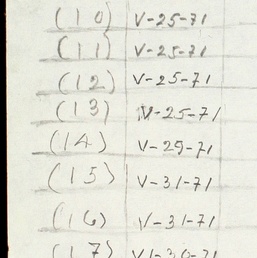 (10) V-25-71
(11) V-25-71
(12) V-25-71
(13) V-25-71
(14) V-29-71
(15) V-31-71
(16) V-31-71
(17)